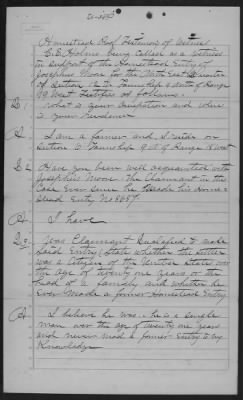 Homestead Proof Testimony of Witness
C.E. Holmes being called as a witness
in support of the Homestead Entry of
Josephus Moore for the North East Quarter
of Section Township 9 South of Range
West Testifies as follows.
Q 1 What is your occupation and where
is your Residence
A I am a farmer and I reside on
Section Township 9 S of Range West
Q 2 Have you been well acquainted with
Josephus Moore The Claimant in the
Case Ever since he Made his Home-
stead Entry No 8687.
A I have
Q 3 Was Claimant Qualified to make
said Entry (State whether the settler
was a citizen of the United States over
the age of twenty one years or the
head of a family and whether he
Ever Made a former Homestead Entry
A I believe he was - he is a single
man over the age of twenty one years
and never made a former Entry to my
Knowledge